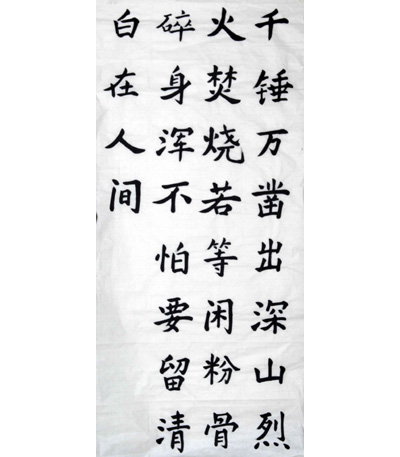 千锤万凿出深山烈
火焚烧若等闲粉骨
碎身浑不怕要留清
白在人间